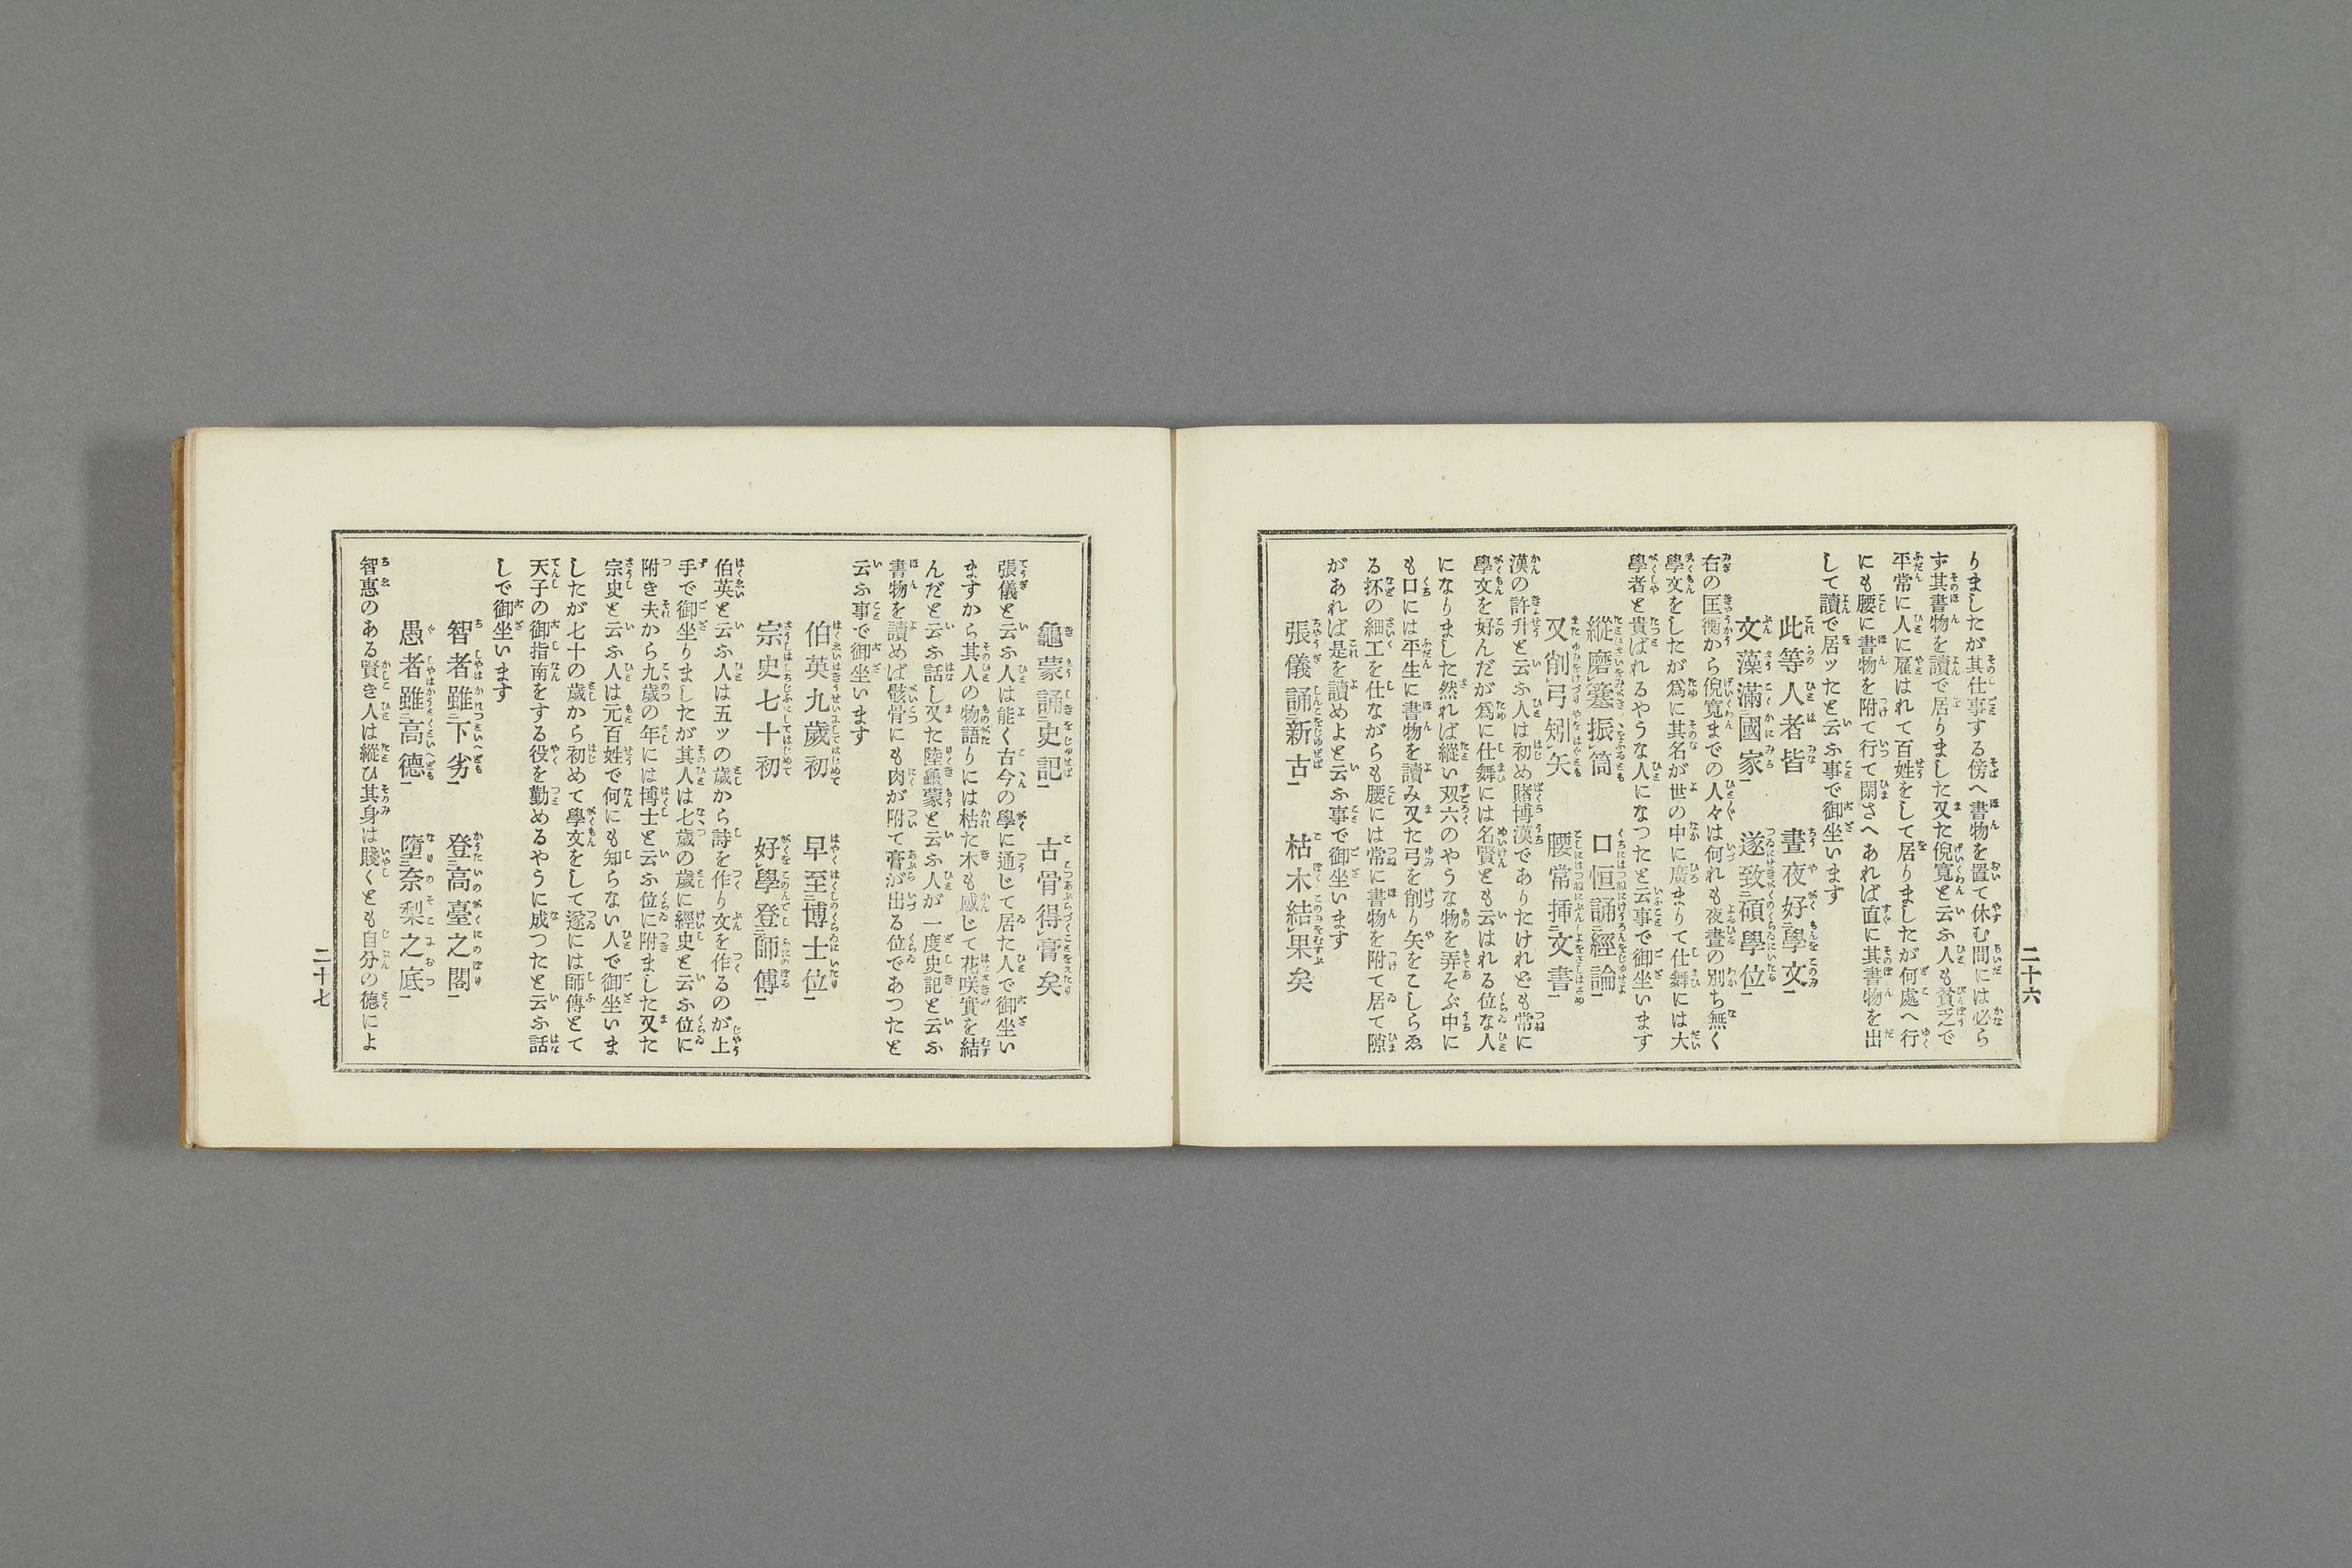 りましたが其仕事する傍へ書物を置て休む間には必ら
ず其書物を讀で居りました又た倪寬と云ふ人も貧乏で
平常に人に雇はれて百姓をして居りましたが何處へ行
にも腰に書物を附て行て閑さへあれば直に其書物を出
して讀で居ッたと云ふ事で御坐います
此等人者皆 晝夜好二學文一
文藻滿二國家一 遂致二碩學位一
右の匡衡から倪寬までの人々は何れも夜晝の別ち無く
學文をしたが爲に其名が世の中に廣まりて仕舞には大
學者と貴ばれるやうな人になつたと云事で御坐います
縱磨レ塞振レ筒 口恒誦二經論一
又削レ弓矧レ矢 腰常挿二文書一
漢の許升と云ふ人は初め賭博漢でありたけれども常に
學文を好んだが爲に仕舞には名賢とも云はれる位な人
になりました然れば縱い双六のやうな物を弄そぶ中に
も口には平生に書物を讀み又た弓を削り矢をこしらゑ
る抔の細工を仕ながらも腰には常に書物を附て居て隙
があれば是を讀めよと云ふ事で御坐います
張儀誦二新古一 枯木結レ果矣
二十六
龜蒙誦二史記一 古骨得レ膏矣
張儀と云ふ人は能く古今の學に通じて居た人で御坐い
ますから其人の物語りには枯た木も感じて花咲實を結
んだと云ふ話し又た陸龜蒙と云ふ人が一度史記と云ふ
書物を讀めば骸骨にも肉が附て膏が出る位であつたと
云ふ事で御坐います
伯英九歲初 早至二博士位一
宗史七十初 好レ學登二師傅一
伯英と云ふ人は五ッの歲から詩を作り文を作るのが上
手で御坐りましたが其人は七歲の歲に經史と云ふ位に
附き夫から九歲の年には博士と云ふ位に附ました又た
宗史と云ふ人は元百姓で何にも知らない人で御坐いま
したが七十の歲から初めて學文をして遂には師傅とて
天子の御指南をする役を勤めるやうに成つたと云ふ話
しで御坐います
智者雖二下劣一 登二高臺之閣一
愚者雖二高德一 墮二奈梨之底一
智惠のある賢き人は縱ひ其身は賤くとも自分の德によ
二十七